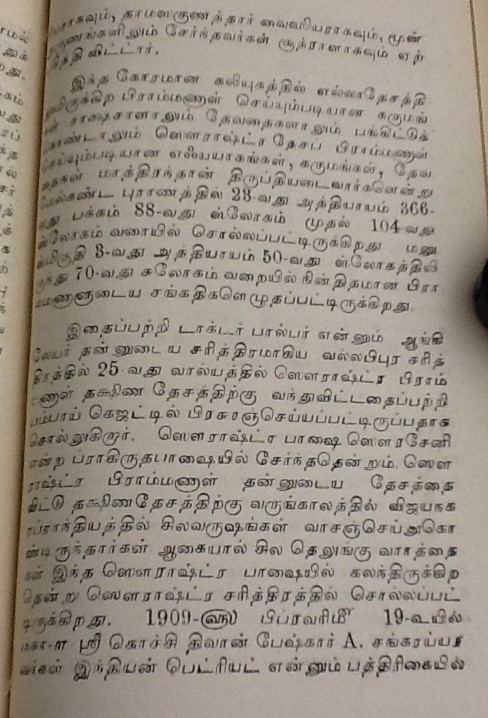 ராகவும், தாமஸகுணத்தார் வைஸியராகவும், மூன்
குணங்களிலும் சேர்ந்தவர்கள் சூத்ராளாகவும் ஏற்
விட்டார்.
இந்த கோரமான கலியுகத்தில் எல்லாதேசத்தி
மிருக்கிற பிராம்மணாள் செய்யும்படியான கருமங்
ராக்ஷசாளாலும் தேவதைகளாலும் பங்கிட்டுக்
கொண்டாலும் ஸௌராஷ்ட்ர தேசப் பிராம்மணாள்
செய்யும்படியான எக்யயாகங்கள், கருமங்கள், தேவ
தைகள் மாத்திரந்தான் திருப்தியடைவார்களென்று
மேல்கண்ட புராணத்தில் 23-வது அத்தியாயம் 366-
வது பக்கம் 88-வது ஸ்லோகம் முதல் 104-வது
ஸ்லோகம் வரையில் சொல்லப்பட்டிருக்கிறது மனு
ஸ்மிருதி 3-வது அத்தியாயம் 50-வது ஸ்லோகத்தில்
ருந்து 70-வது சுலோகம் வறையில் நின்திதமான பிரா
ம்மணாளுடைய சங்கதிகளெழுதப்பட்டிருக்கிறது.
இதைப்பற்றி டாக்டர் பால்பர் என்னும் ஆங்கி
லேயர் தன்னுடைய சரித்திரமாகிய வல்லபிபுர சரித்
திரத்தில் 25-வது வால்யத்தில் ஸௌராஷ்ட்ர பிராம்
மணாள் தக்ஷிண தேசத்திற்கு வந்துவிட்டதைப்பற்றி
பம்பாய் கெஜட்டில் பிரசுரஞ்செய்யப்பட்டிருப்பதாக
சொல்லுகிறார். ஸௌராஷ்ட்ர பாஷை ஸௌரசேனி
என்ற ப்ராகிருதபாஷையில் சேர்ந்ததென்றும், ஸௌ
ராஷ்ட்ர பிராம்மணாள் தன்னுடைய தேசத்தை
விட்டு தக்ஷிணதேசத்திற்கு வருங்காலத்தில் விஜயநக
ரப்ராந்தியத்தில் சிலவருஷங்கள் வாசஞ்செய்துகொ
ண்டிருந்தார்கள் ஆகையால் சில தெலுங்கு வார்த்தை
கள் இந்த ஸௌராஷ்ட்ர பாஷையில் கலந்திருக்கிற
தென்று ஸௌராஷ்ட்ர சரித்திரத்தில் சொல்லப்பட்
டிருக்கிறது. 1909-௵ பிப்ரவரி௴ 19-உயில்
ஸ்ரீ கொச்சி திவான் பேஷ்கார் A. சங்கரய்யா
வர்கள் இந்தியன் பெட்ரியட் என்னும் பத்திரிகையில்